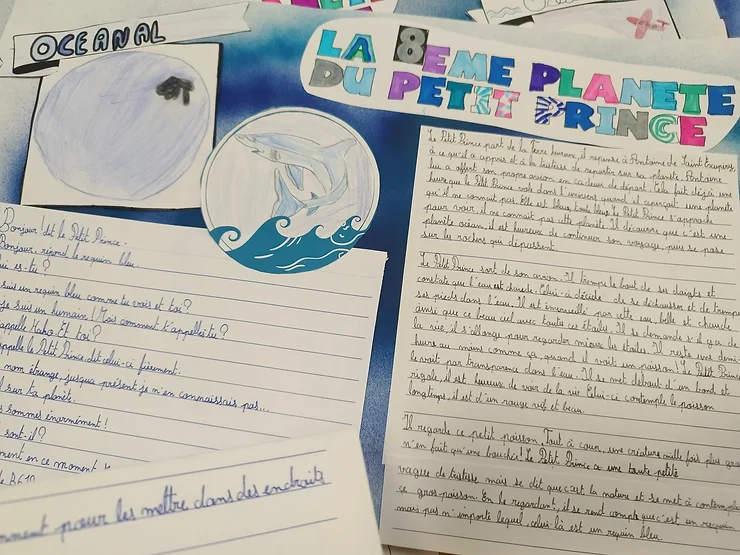 OCEANAL
LA 8EME PLANETE
DU PETIT PRINCE
Bonjour! dit le Petit Prince.
Bonjour, répond le requin bleu.
es-tu?
suis un requin bleu comme tu vois et toi?
je suis un humain! Mais comment t'appelles-tu?
appelle Kaho. Et toi?
appelle le Petit Prince, dit celui-ci fièrement.
nom étrange, jusqua présent je n'en connaissais pas...
sur ta planète.
sommes énormément!
sont-il?
en ce moment
le B610
pour les mettre dans des endroits
Le Petit Prince part de la Terre heureux, il repense à Antoine de Saint Exupéry,
à ce qu'il a appris et à la tristesse de repartir sur sa planète. Antoine
lui a offert son propre avion en cadeau de départ. Cela fait déjà une
heure que le Petit Prince vole dans l'univers quand il aperçoit une planète
qu'il ne connaît pas. Elle est bleue, tout bleu. Le Petit Prince s'approche
pour voir, il ne connait pas cette planète. Il découvre que c'est une
planète océan, il est heureux de continuer son voyage, puis se pose
sur les rochers qui dépassent.
Le Petit Prince sort de son avion. Il trempe le bout de ses doigts et
constate que l'eau est chaude. Celui-ci décide de se déchausser et de tremper
ses pieds dans l'eau. Il est émerveillé par cette eau belle et chaude
ainsi que ce beau ciel avec toute ces étoiles. Il se demande s'il y a de
la vie, il s'allonge pour regarder mieux les étoiles. Il reste une demi-
heure au moins comme ça, quand il voit un poisson! Le Petit Prince
le voit par transparence dans l'eau. Il se met debout d'un bond et
rigole, il est heureux de voir de la vie. Celui-ci contemple le poisson
longtemps, il est d'un rouge vif et beau.
Il regarde ce petit poisson. Tout à coup, une créature mille fois plus gro
n'en fait qu'une bouchée! Le Petit Prince a une toute petite
vague de tristesse mais se dit que c'est la nature et se met à contempler
ce gros poisson. En le regardant, il se rend compte que c'est un requin
mais pas n'importe lequel, celui-là est un requin bleu.